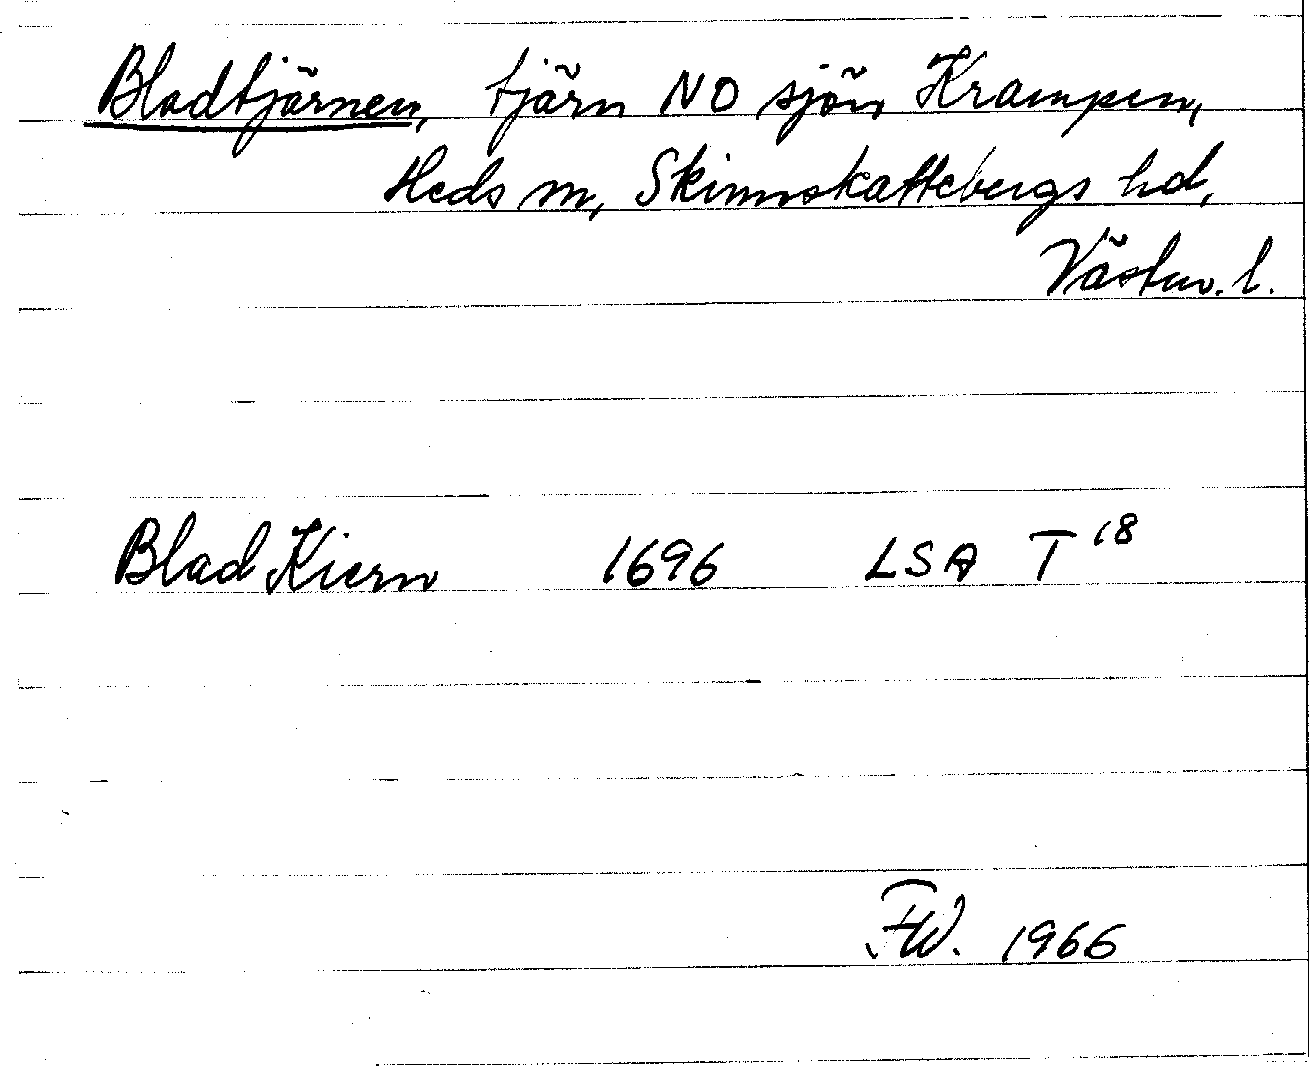 Bladtjärnen, tjärn NO sjön Krampen,
Heds sn, Skinnskattebergs hd,
Västm. l.
Blad Kiern 1696 LSA T 18
FW. 1966